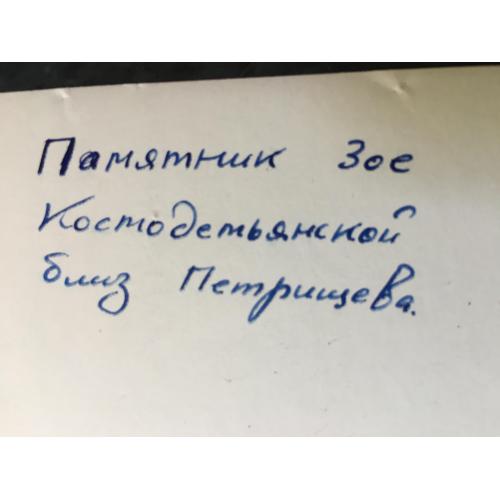 Памятник Зое
Костодемьянской
близ Петрищева.